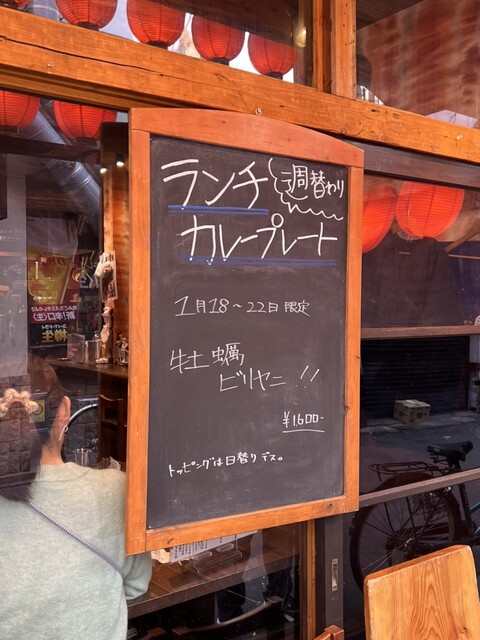 ランチ 週替わり
カレープレート
1月18～22日 限定
牡蠣
ビリヤニ!!
¥1600-
トッピングは日替りデス。